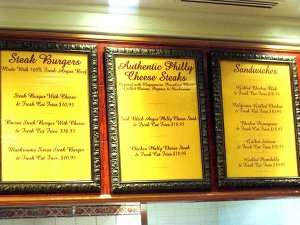 Steak Burgers
Made With 100% Fresh Angus Beef
Steak Burger With Cheese
& Fresh Cut Fries $10.95
Bacon Steak Burger With Cheese
& Fresh Cut Fries $10.95
Mushrooms Swiss Steak Burger
& Fresh Cut Fries $10.95
Authentic Philly
Cheese Steaks
Grilled Onions, Peppers & Mushrooms
Black Angus Philly Cheese Steak
& Fresh Cut Fries $10.95
Chicken Philly Cheese Steak
& Fresh Cut Fries $10.95
Sandwiches
Grilled Chicken Club
& Fresh Cut Fries $10.95
California Grilled Chicken
& Fresh Cut Fries $10.95
Chicken Parmigiana
& Fresh Cut Fries $10.95
Grilled Salmon
& Fresh Cut Fries $10.95
Grilled Portobello
& Fresh Cut Fries $10.95